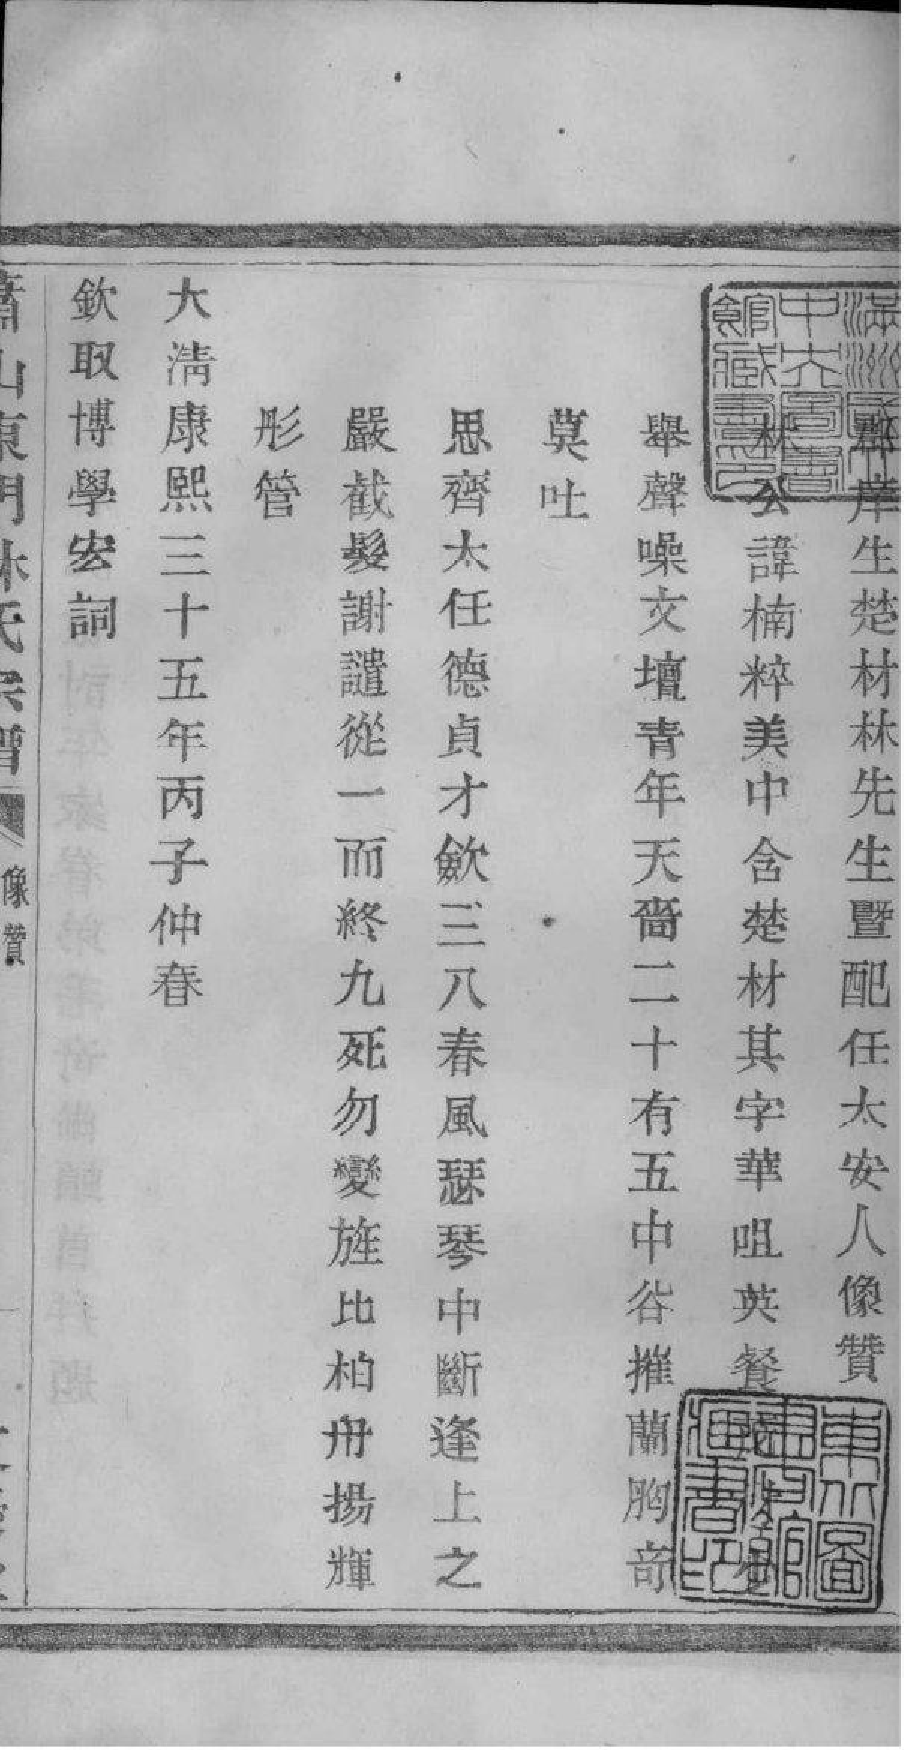 郡庠生楚材林先生暨配任太安人像贊
林公諱楠粹美中含楚材其字華咀英餐
舉聲噪文壇青年天嗇二十有五中谷摧蘭胸奇
莫吐
思齊太任德貞才歛三八春風瑟琴中斷逢上之
嚴截髮謝讉從一而終九死勿變旌比柏舟揚輝
彤管
大清康熙三十五年丙子仲春
欽取博學宏詞
蕭山東門林氏宗譜 像贊